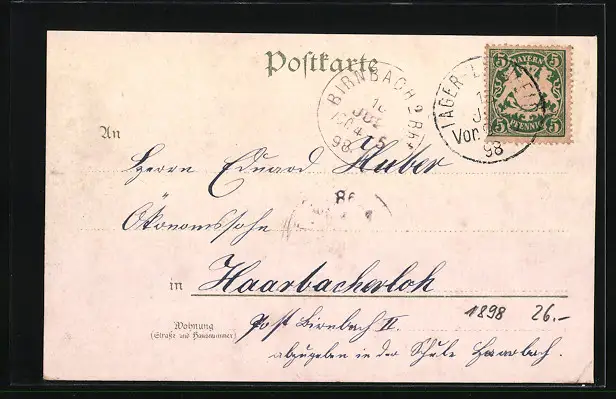 Postkarte
BAYERN
5 5
5 5
PFENNIG
BIRNBACH
10
JUL
98
10
Vor.
98
An
Herrn Eduard Huber
Ökonomssohn
86
in Haarbacherloh
1898 26.-
Wohnung
(Straße und Hausnummer)
Post Birnbach II.
abzugeben in der Schule Haarbach.